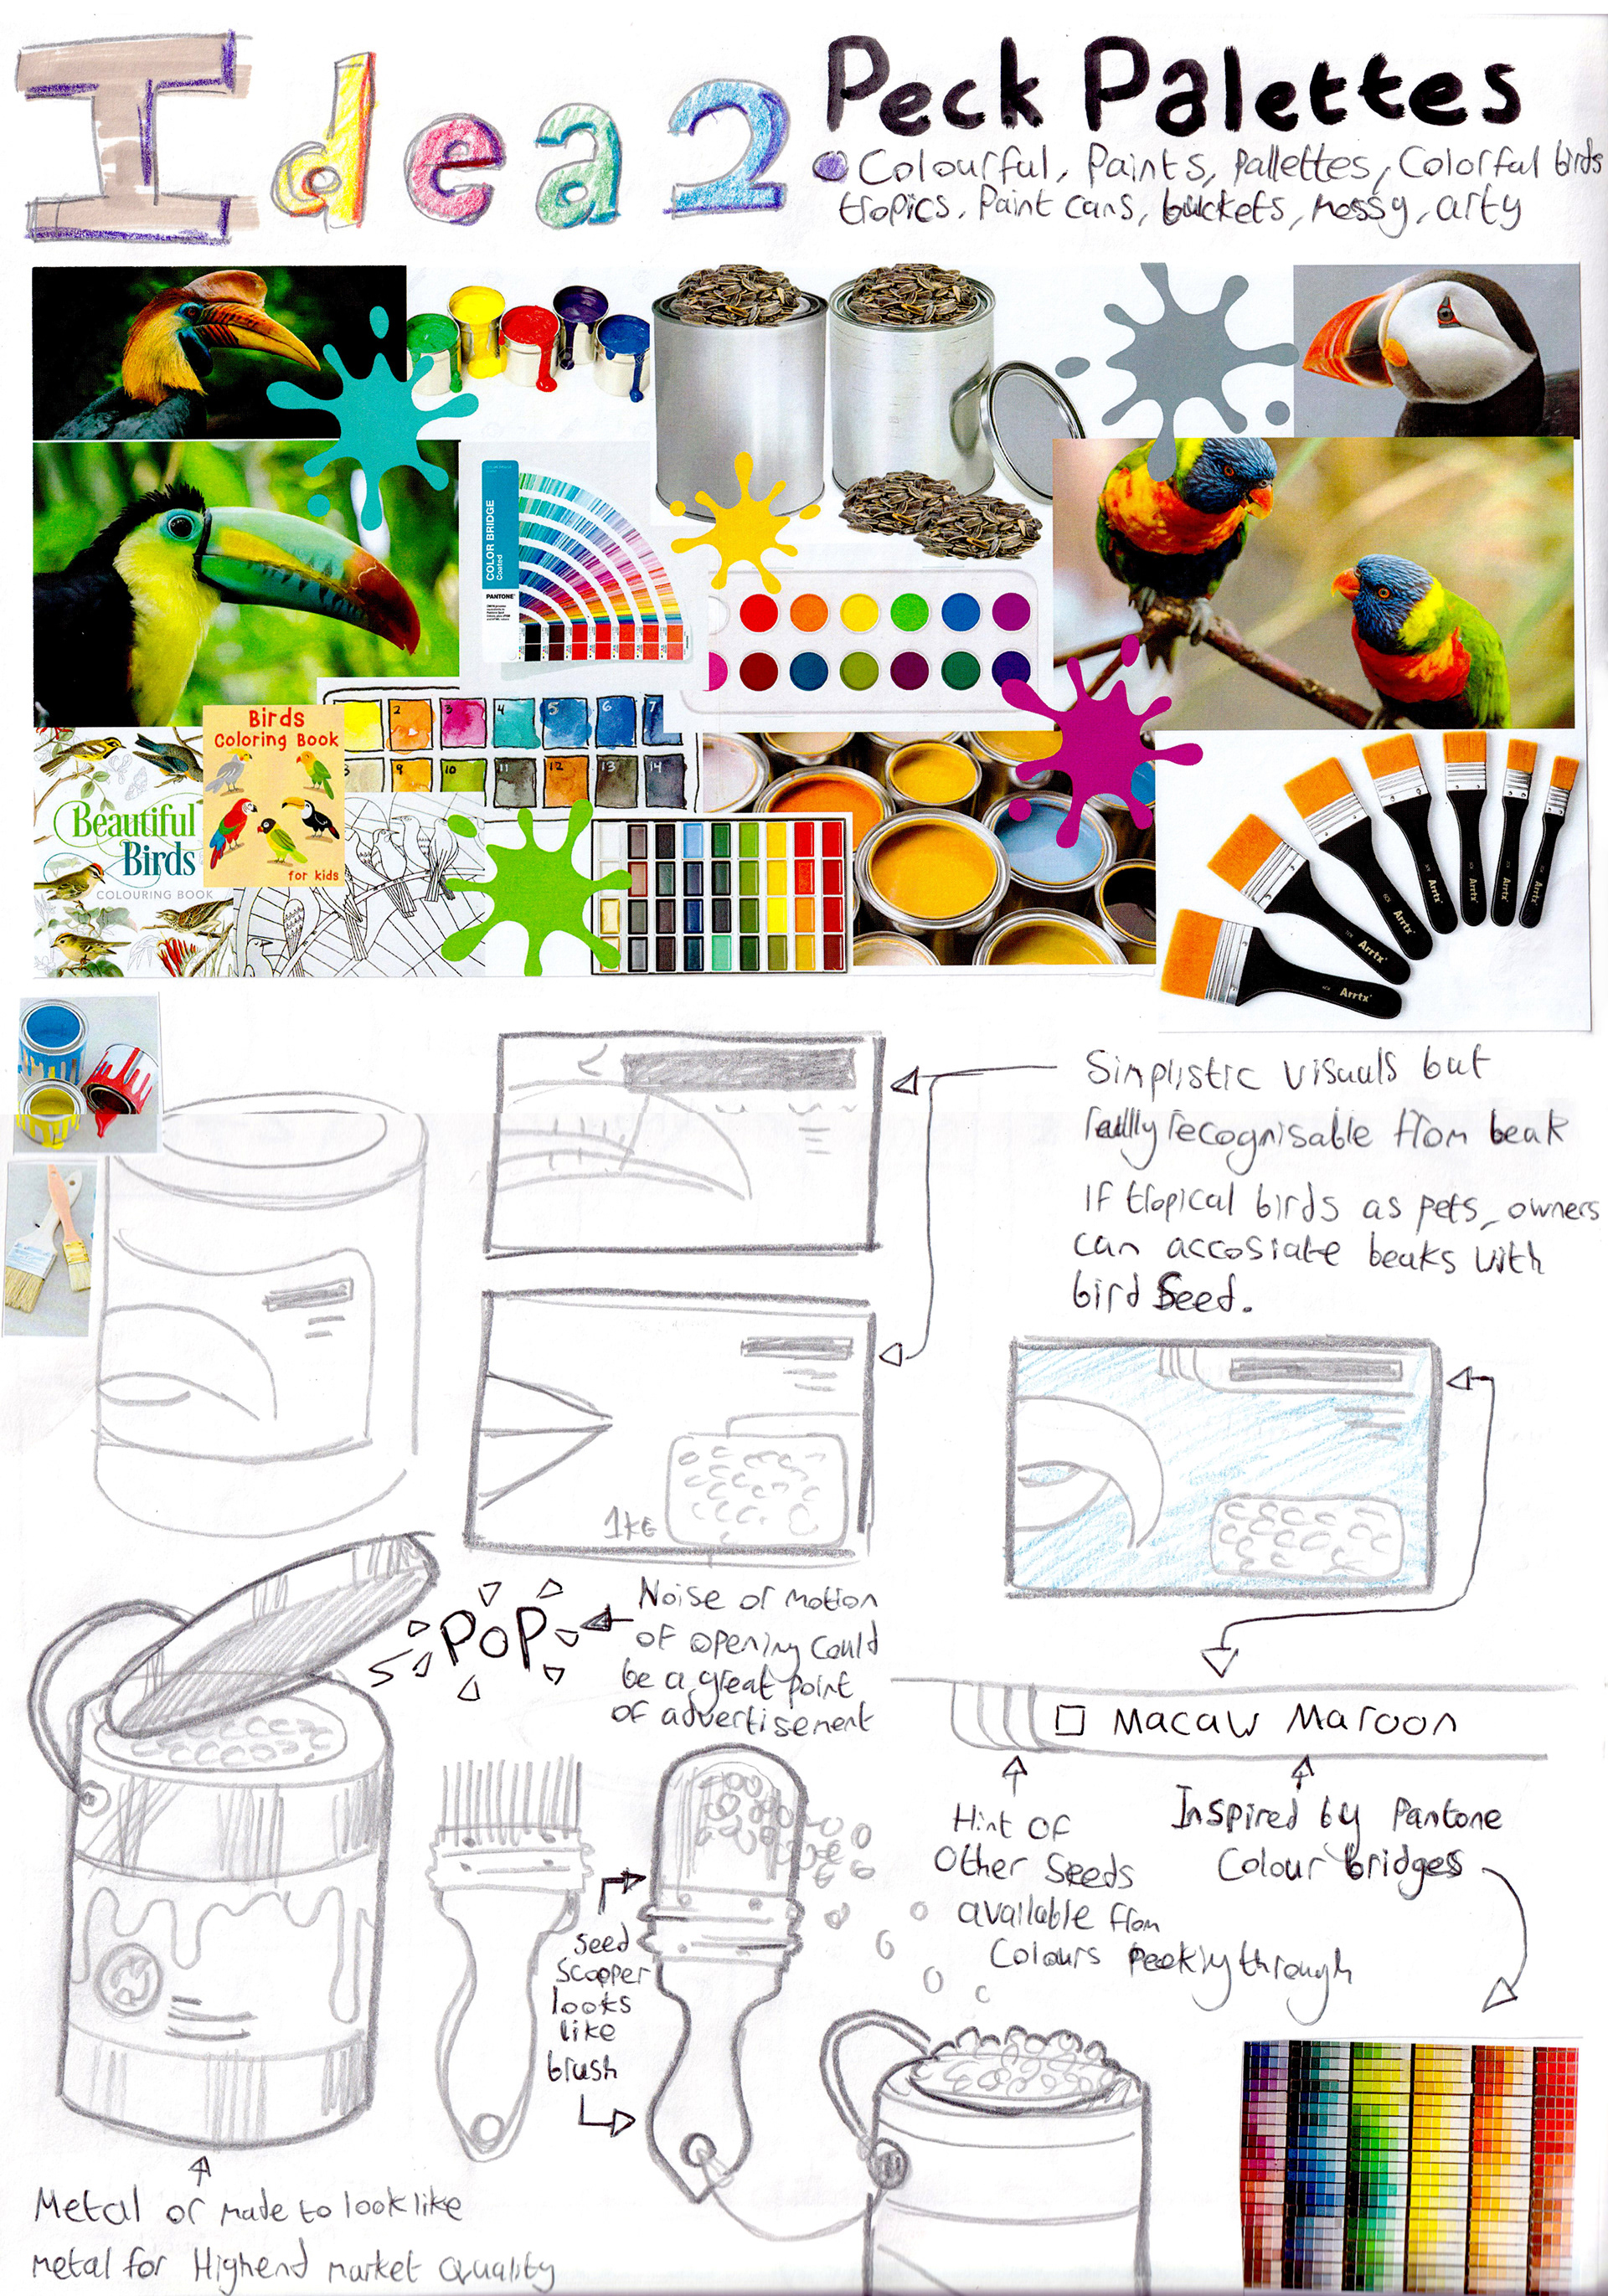 Idea 2
Peck Palettes
Colourful, Paints, Pallettes, Colorful birds
tropics, Paint cans, buckets, messy, arty
COLOR BRIDGE
Coated
PANTONE
2 3 4 5 6 7
9 10 11 12 13 14
Birds
Coloring Book
for kids
Beautiful
Birds
COLOURING BOOK
Arrtx
Arrtx
Arrtx
Arrtx
Arrtx
Arrtx
Simplistic visuals but
really recognisable from beak
If tropical birds as pets, owners
can accosiate beaks with
bird Seed.
1KG
POP
Noise or motion
of opening could
be a great point
of advertisement
Macaw Maroon
Hint of
Other Seeds
available from
Colours Peekiy through
Inspired by Pantone
Colour bridges
Seed
Scooper
looks
like
brush
Metal or made to look like
metal for Highend market Quality